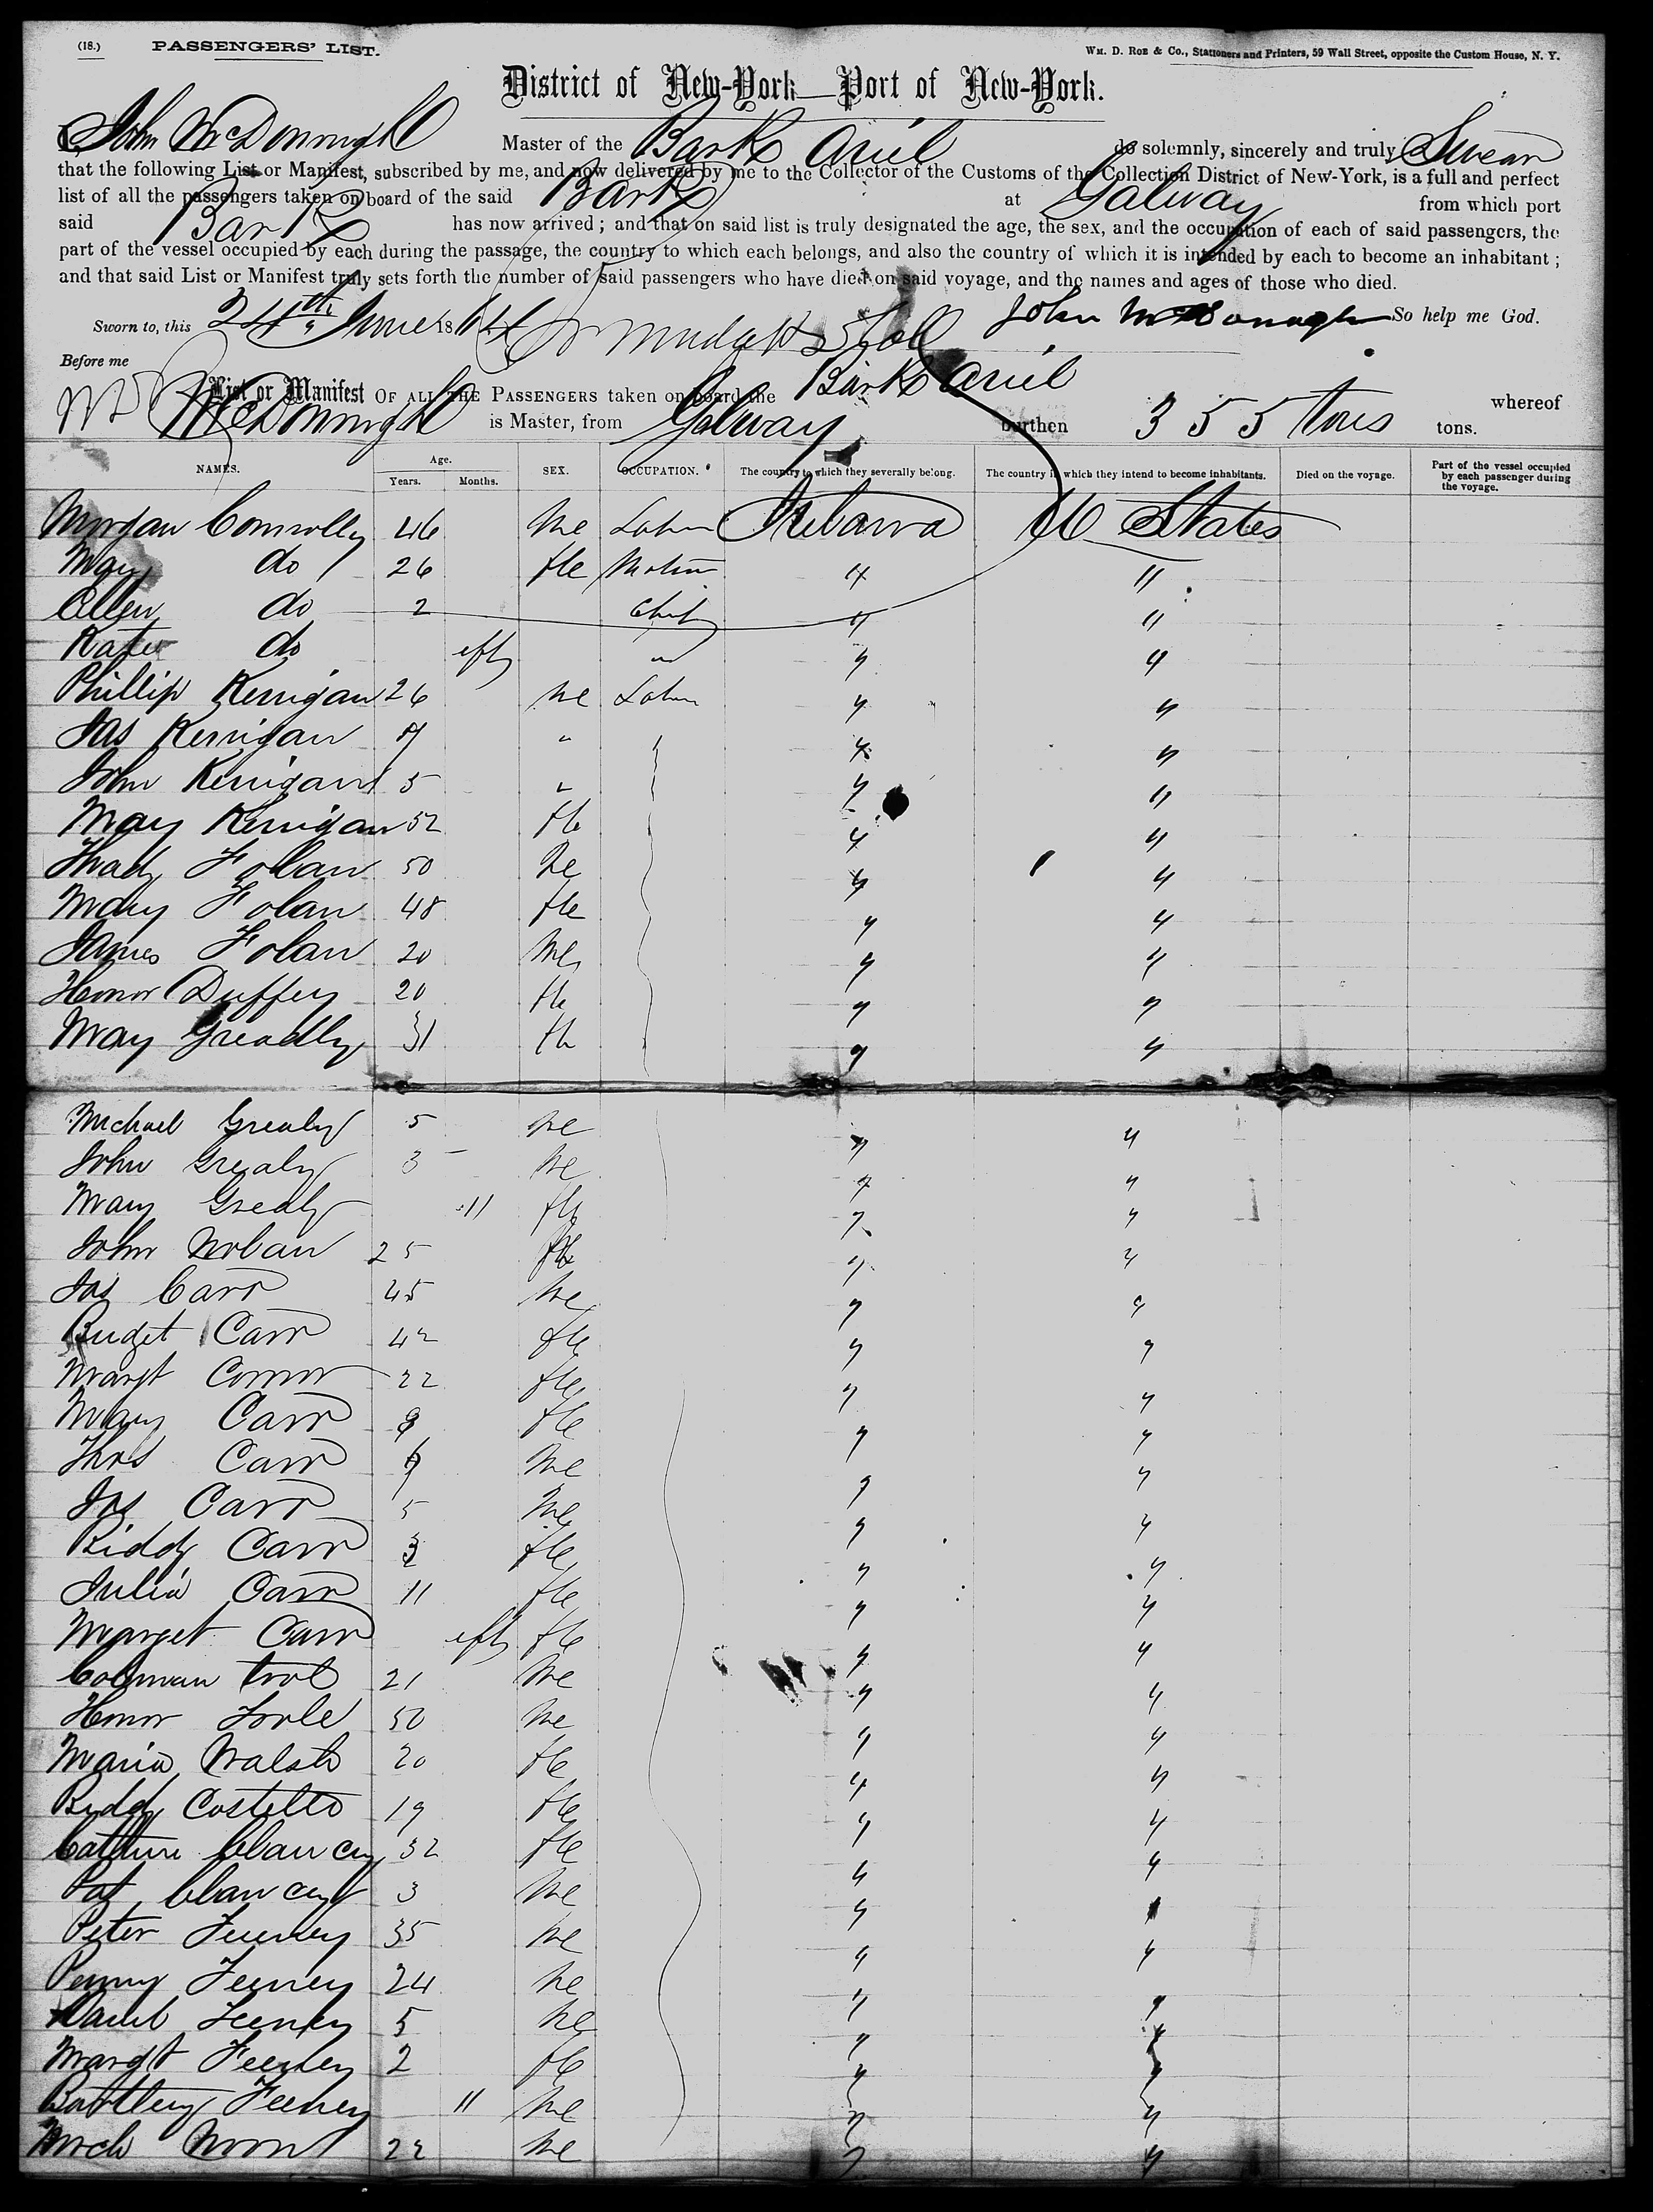 (18.) PASSENGERS' LIST. WM. D. ROE & CO., Stationers and Printers, 59 Wall Street, opposite the Custom House, N. Y.
District of New-York—Port of New-York.
I, John McDonnugh Master of the Bark Ariel do solemnly, sincerely and truly Swear
that the following List or Manifest, subscribed by me, and now delivered by me to the Collector of the Customs of the Collection District of New-York, is a full and perfect
list of all the passengers taken on board of the said Bark at Galway from which port
said Bark has now arrived; and that on said list is truly designated the age, the sex, and the occupation of each of said passengers, the
part of the vessel occupied by each during the passage, the country to which each belongs, and also the country of which it is intended by each to become an inhabitant;
and that said List or Manifest truly sets forth the number of said passengers who have died on said voyage, and the names and ages of those who died.
Sworn to, this 24th June 1864 John McDonagh So help me God.
Before me
List or Manifest OF ALL THE PASSENGERS taken on board the Bark Ariel whereof
McDonnugh is Master, from Galway burthen 355 tons tons.
NAMES. Age. Years. Months. SEX. OCCUPATION. The country to which they severally belong. The country in which they intend to become inhabitants. Died on the voyage. Part of the vessel occupied by each passenger during the voyage.
Morgan Connolly 46 Me Labr U States
Mary do 26 fle " "
Ellen do 2 " "
Kate do " "
Phillip Kerrigan 26 Me Labr " "
Jas Kerrigan " " "
John Kerrigan 5 " " "
Mary Kerrigan 52 fle " "
Thady Folan 50 Me " "
Mary Folan 48 fle " "
James Folan 20 Me " "
Honor Duffey 20 fle " "
Mary Greadly 31 fle " "
Michael Grealy 5 Me " "
John Grealy 3 Me " "
Mary Grealy 11 fle " "
John Nolan 25 " "
Jas Carr 45 Me " "
Bridget Carr 42 fle " "
Margt Connor 22 fle " "
Mary Carr fle " "
Thos Carr Me " "
Jas Carr 5 Me " "
Biddy Carr 3 fle " "
Julia Carr 11 fle " "
Margret Carr fle " "
Colman 21 Me " "
Honor 50 Me " "
Maria Walsh 20 fle " "
Biddy Costello 19 fle " "
Catherine Clancy 32 fle " "
Pat Clancy 3 Me " "
Peter Feeney 35 Me " "
Penny Feeney 24 Me " "
Feeney 5 Me " "
Margt Feeney 2 fle " "
Bartley Feeney 11 Me " "
Mich 22 Me " "